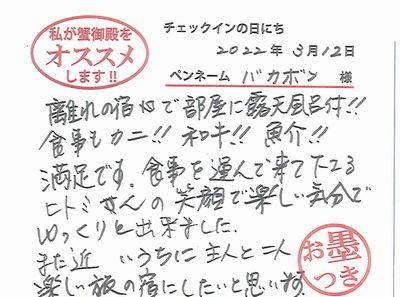 私が蟹御殿を
オススメ
します!!
チェックインの日にち
2022年 3月12日
ペンネーム バカボン 様
離れの宿で部屋に露天風呂付!!
食事もカニ!! 和牛!! 魚介!!
満足です。食事を運んで来て下さる
ヒトミさんの笑顔で楽しい気分で
ゆっくりと出来ました。
また近いうちに主人と二人
楽しい旅の宿にしたいと思います。
お墨
つき